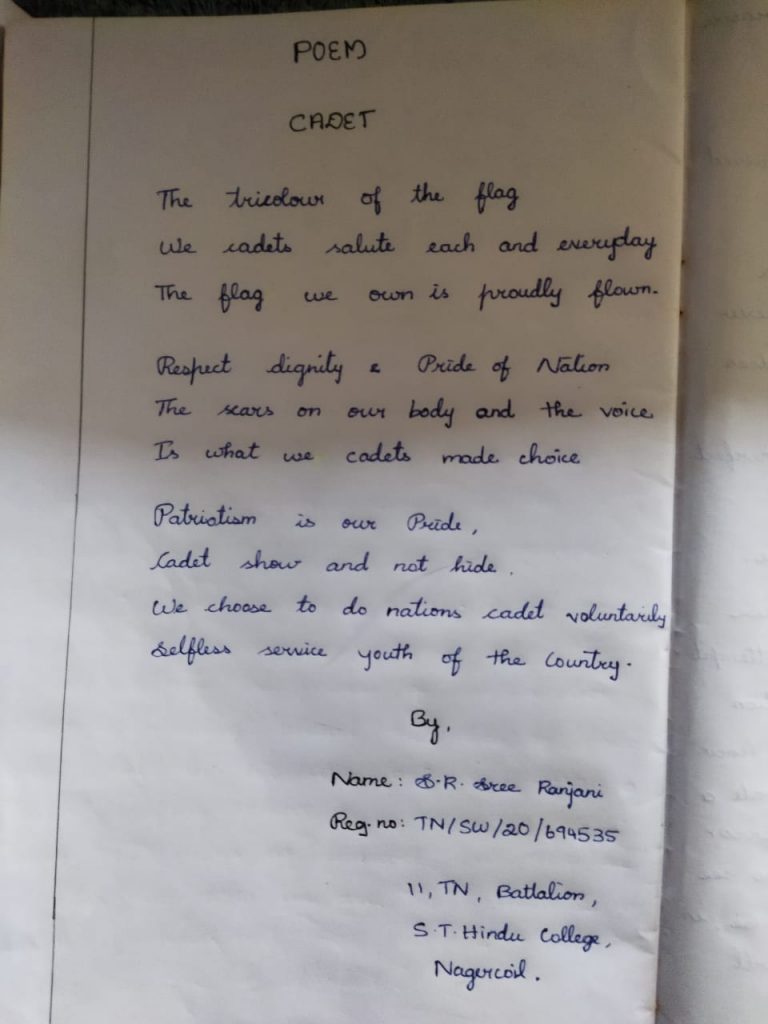 POEM
CADET
The tricolour of the flag
We cadets salute each and everyday
The flag we own is proudly flown.
Respect dignity & Pride of Nation
The scars on our body and the voice
Is what we cadets made choice
Patriotism is our Pride,
Cadet show and not hide.
We choose to do nations cadet voluntarily
Selfless service youth of the Country.
By,
Name: S.R. Sree Ranjani
Reg.no: TN/SW/20/694535
11, TN, Battalion,
S.T. Hindu College,
Nagercoil.